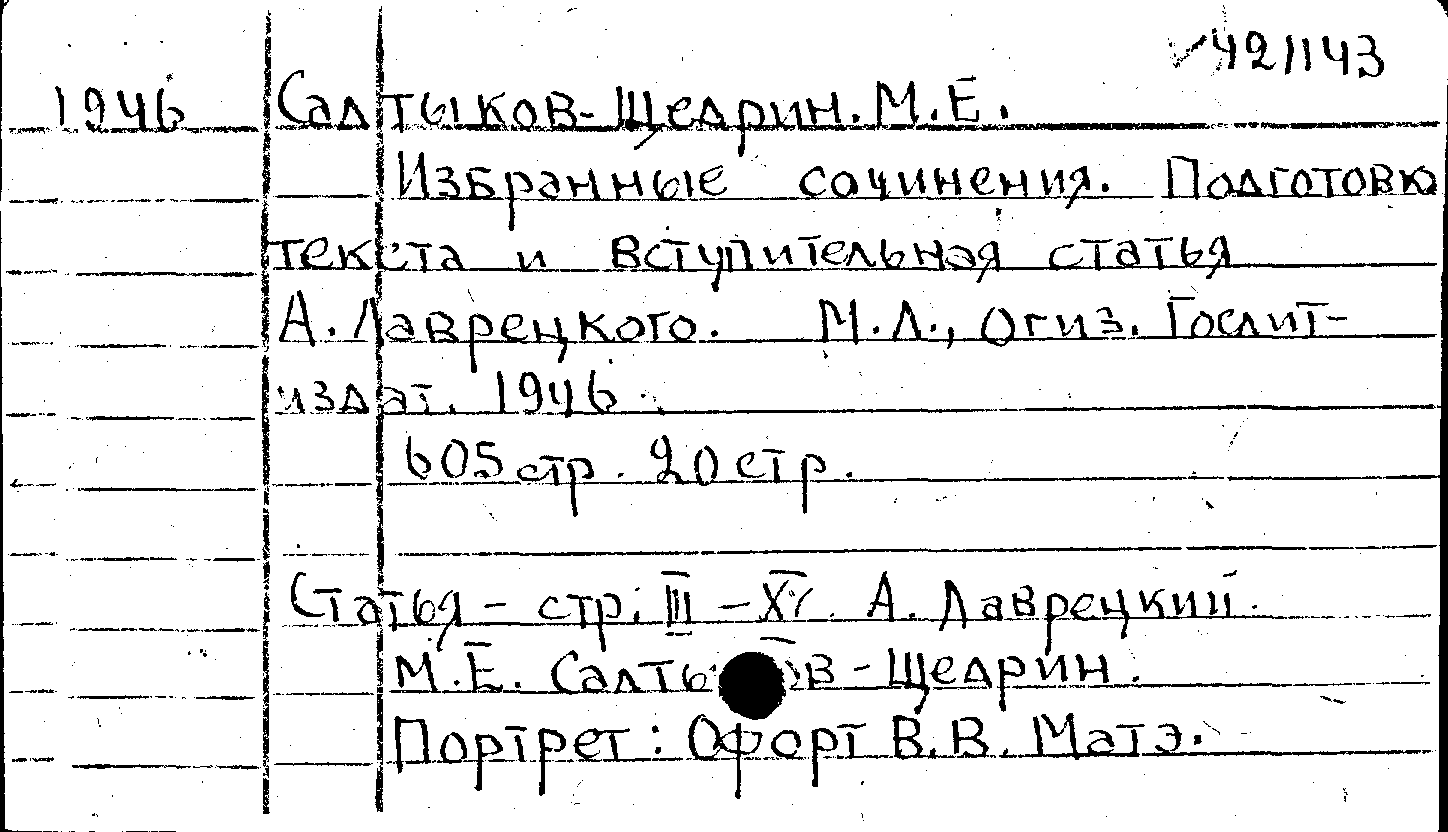 42/143
1946 Салтыков-Щедрин. М.Е.
Избранные сочинения. Подготовка
текста и вступительная статья
А. Лаврецкого. М.Л., Огиз. Гослит-
издат. 1946.
605 стр. 20 стр.
Статья - стр. III - XV. А. Лаврецкий.
М.Е. Салтыков-Щедрин.
Портрет: Офорт В.В. Матэ.